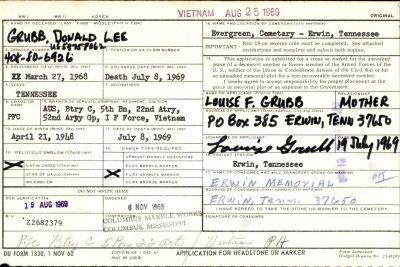 WW I WW II KOREA VIETNAM AUG 25 1969
ORIGINAL
NAME OF DECEASED - LAST - FIRST - MIDDLE (Print or Type)
GRUBB, DONALD LEE
14. NAME AND LOCATION OF CEMETERY (City and State)
Evergreen, Cemetary - Erwin, Tennessee
IMPORTANT: Item 18 on reverse side must be completed. See attached instructions and complete and submit both copies.
2. SERVICE NUMBER
PENSION OR VA CLAIM NUMBER
US
XX March 27, 1968
Death July 8, 1969
This application is submitted for a stone or marker for the unmarked grave of a deceased member or former member of the Armed Forces of the U.S., soldier of the Union or Confederate Armies of the Civil War or for an unmarked memorial plot for a non-recoverable deceased member.
I hereby agree to accept responsibility for proper placement at grave or memorial plot at no expense to the Government.
STATE
TENNESSEE
LOUISE F. GRUBB MOTHER
PO Box 365 ERWIN, TENN 37650
GRADE
PFC
BRANCH OF SERVICE, COMPANY, REGIMENT, DIVISION
AUS, Btry C, 5th Bn, 22nd Atry,
52nd Arty Gp, I F Force, Vietnam
Louise Grubb 19 July 1969
April 21, 1948
July 8, 1969
Erwin, Tennessee
RELIGIOUS EMBLEM (Check one)
CHECK TYPE REQUIRED
LATIN CROSS (Christian)
STAR OF DAVID (Hebrew)
NO EMBLEM
UPRIGHT MARBLE HEADSTONE
FLAT MARBLE MARKER
FLAT GRANITE MARKER
FLAT BRONZE MARKER
ERWIN MEMORIAL
ERWIN, Tenn. 37650
DO NOT WRITE HERE
19 AUG 1969
6 NOV 1969
I HAVE AGREED TO TAKE THE STONE OR MARKER TO THE CEMETERY.
SIGNATURE OF CONSIGNEE
Z2682379
COLUMBUS MARBLE WORKS
COLUMBUS, MISSISSIPPI
PFC Btry C 5 Bn 22 arty PH
DD FORM 1330, 1 NOV 62
APPLICATION FOR HEADSTONE OR MARKER